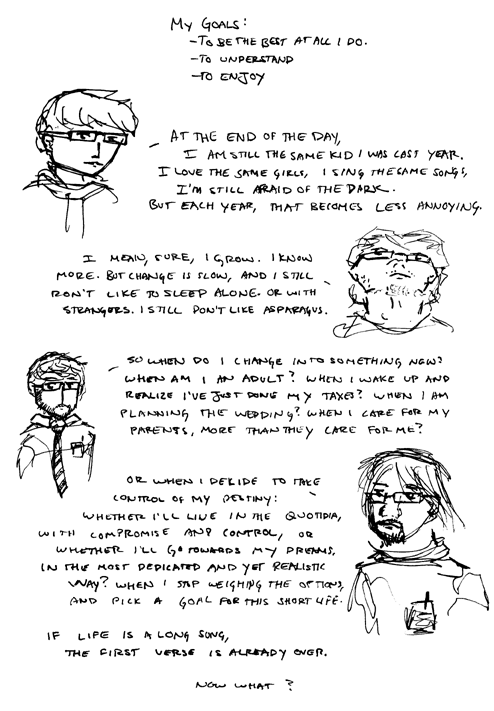 MY GOALS:
-TO BE THE BEST AT ALL I DO.
-TO UNDERSTAND
-TO ENJOY
AT THE END OF THE DAY,
I AM STILL THE SAME KID I WAS LAST YEAR.
I LOVE THE SAME GIRLS, I SING THE SAME SONGS,
I'M STILL AFRAID OF THE DARK.
BUT EACH YEAR, THAT BECOMES LESS ANNOYING.
I MEAN, SURE, I GROW. I KNOW
MORE. BUT CHANGE IS SLOW, AND I STILL
DON'T LIKE TO SLEEP ALONE. OR WITH
STRANGERS. I STILL DON'T LIKE ASPARAGUS.
SO WHEN DO I CHANGE INTO SOMETHING NEW?
WHEN AM I AN ADULT? WHEN I WAKE UP AND
REALIZE I'VE JUST DONE MY TAXES? WHEN I AM
PLANNING THE WEDDING? WHEN I CARE FOR MY
PARENTS, MORE THAN THEY CARE FOR ME?
OR WHEN I DECIDE TO TAKE
CONTROL OF MY DESTINY:
WHETHER I'LL LIVE IN THE QUOTIDIA,
WITH COMPROMISE AND CONTROL, OR
WHETHER I'LL GO TOWARDS MY DREAMS,
IN THE MOST DEDICATED AND YET REALISTIC
WAY? WHEN I STOP WEIGHING THE OPTIONS,
AND PICK A GOAL FOR THIS SHORT LIFE.
IF LIFE IS A LONG SONG,
THE FIRST VERSE IS ALREADY OVER.
NOW WHAT?